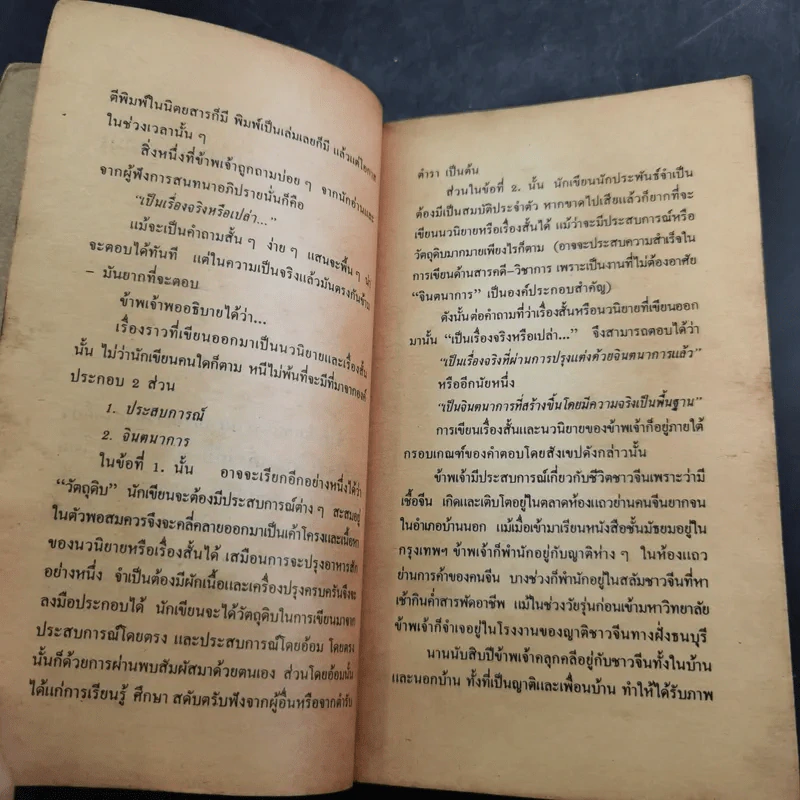 ตีพิมพ์ในนิตยสารก็มี พิมพ์เป็นเล่มเลยก็มี แล้วแต่โอกาส
ในช่วงเวลานั้น ๆ
สิ่งหนึ่งที่ข้าพเจ้าถูกถามบ่อย ๆ จากนักอ่านและ
จากผู้ฟังการสนทนาอภิปรายนั่นก็คือ
“เป็นเรื่องจริงหรือเปล่า...”
แม้จะเป็นคำถามสั้น ๆ ง่าย ๆ แสนจะพื้น ๆ
จะตอบได้ทันที แต่ในความเป็นจริงแล้วมันตรงกันข้าม
– มันยากที่จะตอบ
ข้าพเจ้าพออธิบายได้ว่า...
เรื่องราวที่เขียนออกมาเป็นนวนิยายและเรื่องสั้น
นั้น ไม่ว่านักเขียนคนใดก็ตาม หนีไม่พ้นที่จะมีที่มาจากองค์
ประกอบ 2 ส่วน
1. ประสบการณ์
2. จินตนาการ
ในข้อที่ 1. นั้น อาจจะเรียกอีกอย่างหนึ่งได้ว่า
“วัตถุดิบ” นักเขียนจะต้องมีประสบการณ์ต่าง ๆ สะสมอยู่
ในตัวพอสมควรจึงจะคลี่คลายออกมาเป็นเค้าโครงและเนื้อหา
ของนวนิยายหรือเรื่องสั้นได้ เสมือนการจะปรุงอาหารสัก
อย่างหนึ่ง จำเป็นต้องมีผักเนื้อและเครื่องปรุงครบครันจึงจะ
ลงมือประกอบได้ นักเขียนจะได้วัตถุดิบในการเขียนมาจาก
ประสบการณ์โดยตรง และประสบการณ์โดยอ้อม โดยตรง
นั้นก็ด้วยการผ่านพบสัมผัสมาด้วยตนเอง ส่วนโดยอ้อมนั้น
ได้แก่การเรียนรู้ ศึกษา สดับตรับฟังจากผู้อื่นหรือจากตำรับ
ตำรา เป็นต้น
ส่วนในข้อที่ 2. นั้น นักเขียนนักประพันธ์จำเป็น
ต้องมีเป็นสมบัติประจำตัว หากขาดไปเสียแล้วก็ยากที่จะ
เขียนนวนิยายหรือเรื่องสั้นได้ แม้ว่าจะมีประสบการณ์หรือ
วัตถุดิบมากมายเพียงไรก็ตาม (อาจจะประสบความสำเร็จใน
การเขียนด้านสารคดี–วิชาการ เพราะเป็นงานที่ไม่ต้องอาศัย
“จินตนาการ” เป็นองค์ประกอบสำคัญ)
ดังนั้นต่อคำถามที่ว่าเรื่องสั้นหรือนวนิยายที่เขียนออก
มานั้น “เป็นเรื่องจริงหรือเปล่า...” จึงสามารถตอบได้ว่า
“เป็นเรื่องจริงที่ผ่านการปรุงแต่งด้วยจินตนาการแล้ว”
หรืออีกนัยหนึ่ง
“เป็นจินตนาการที่สร้างขึ้นโดยมีความจริงเป็นพื้นฐาน”
การเขียนเรื่องสั้นและนวนิยายของข้าพเจ้าก็อยู่ภายใต้
กรอบเกณฑ์ของคำตอบโดยสังเขปดังกล่าวนั้น
ข้าพเจ้ามีประสบการณ์เกี่ยวกับชีวิตชาวจีนเพราะว่ามี
เชื้อจีน เกิดและเติบโตอยู่ในตลาดห้องแถวย่านคนจีนยากจน
ในอำเภอบ้านนอก แม้เมื่อเข้ามาเรียนหนังสือชั้นมัธยมอยู่ใน
กรุงเทพฯ ข้าพเจ้าก็พำนักอยู่กับญาติห่าง ๆ ในห้องแถว
ย่านการค้าของคนจีน บางช่วงก็พำนักอยู่ในสลัมชาวจีนที่หา
เช้ากินค่ำสารพัดอาชีพ แม้ในช่วงวัยรุ่นก่อนเข้ามหาวิทยาลัย
ข้าพเจ้าก็จำเจอยู่ในโรงงานของญาติชาวจีนทางฝั่งธนบุรี
นานนับสิบปีข้าพเจ้าคลุกคลีอยู่กับชาวจีนทั้งในบ้าน
และนอกบ้าน ทั้งที่เป็นญาติและเพื่อนบ้าน ทำให้ได้รับภาพ